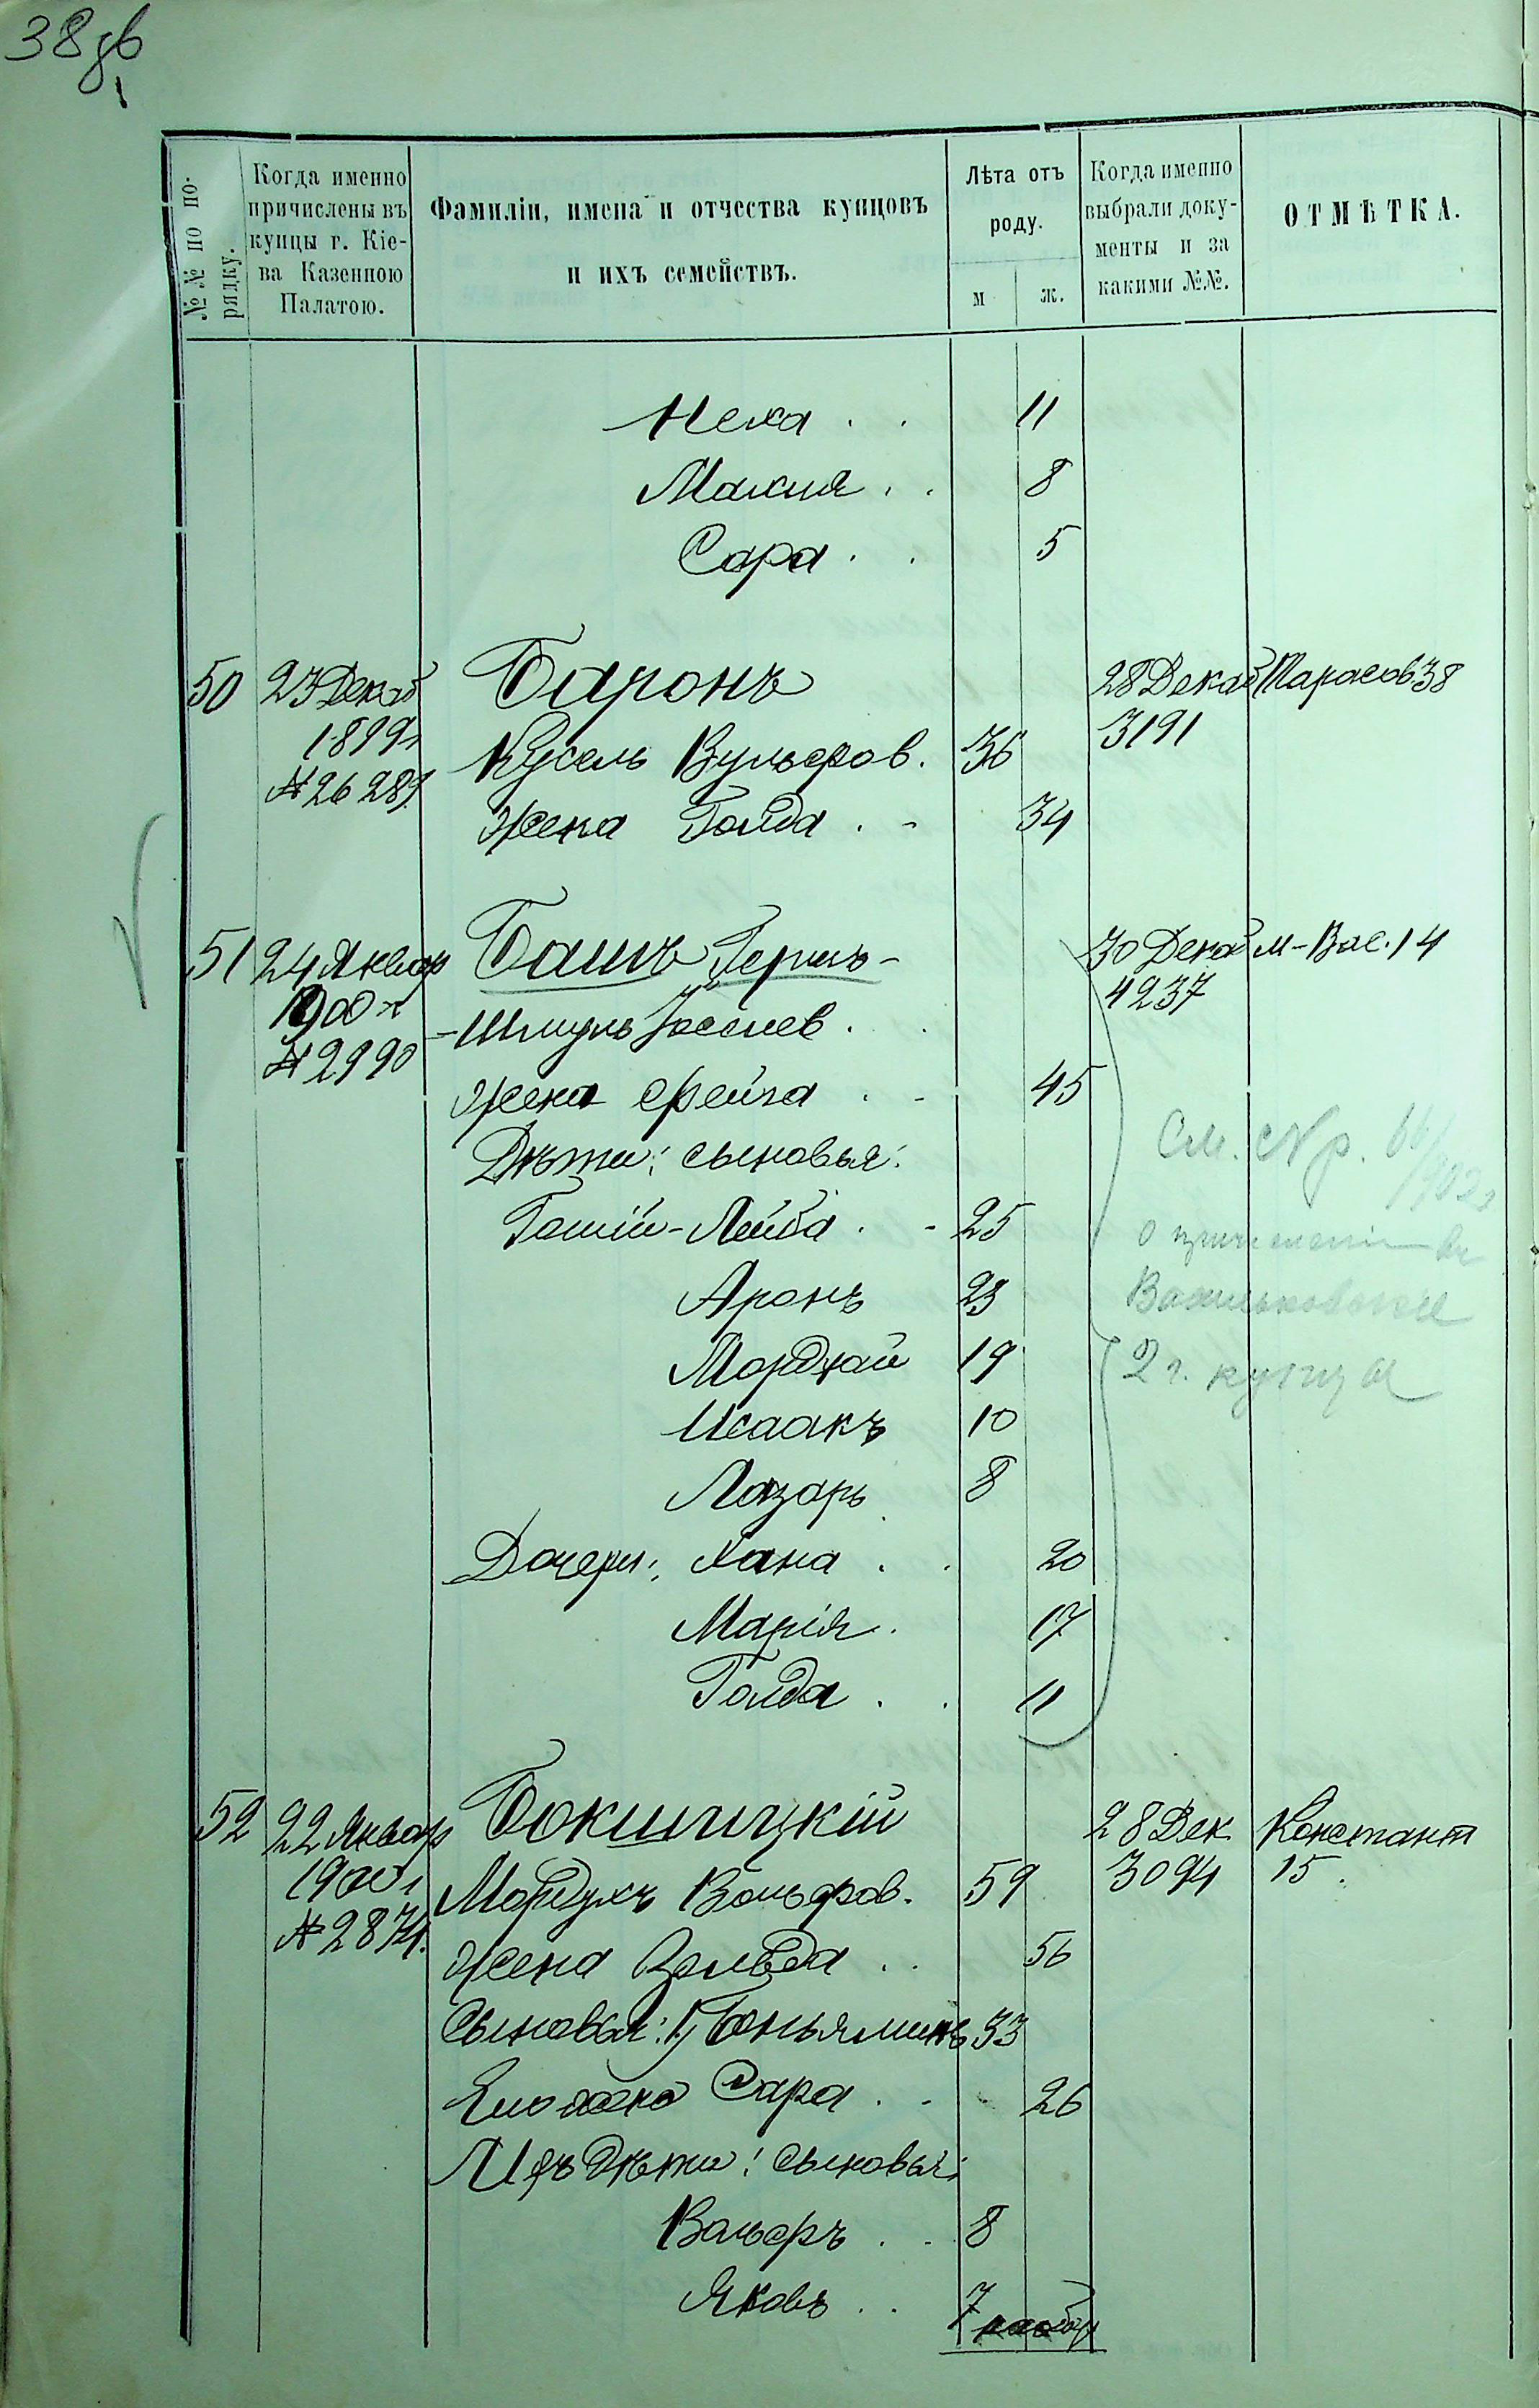 38
№№ по порядку.
Когда именно причислены въ купцы г. Кіева Казенною Палатою.
Фамиліи, имена и отчества купцовъ и ихъ семействъ.
Лѣта отъ роду.
м ж.
Когда именно выбрали документы и за какими №№.
ОТМѢТКА.
Неха . . 11
Малия . . 8
Сара . . 5
50 23 Декаб Баронъ 28 Декаб Тарасов 38
1899 г Кусель Вульфов. 36 3191
№ 26289 Жена Голда . - 34
51 24 Январ Башъ Гершъ- 30 Декаб М-Вас. 14
1900 г -Шмуль Іоселев . . 4237
№ 2990
Жена Фейга . - 45
Дѣти: сыновья:
См. 66/902 г
-Лейба . - 25
о причислении въ
Аронъ 23
Васильковские
Мордхай 19
2 г. купцы
Исаакъ 10
Лазарь 8
Дочери: Хана . . 20
Марія . 17
Голда . . 11
52 22 Январ Бокшицкій 28 Дек Констант
1900 г Мордухъ Вольфов. 59 3094 15.
№ 2874. Жена Зельда . . 56
Сыновья: 1, Беньяминъ 33
Его жена Сара . - 26
Ихъ дѣти: сыновья:
Вольфъ . . 8
Яковъ . . 7